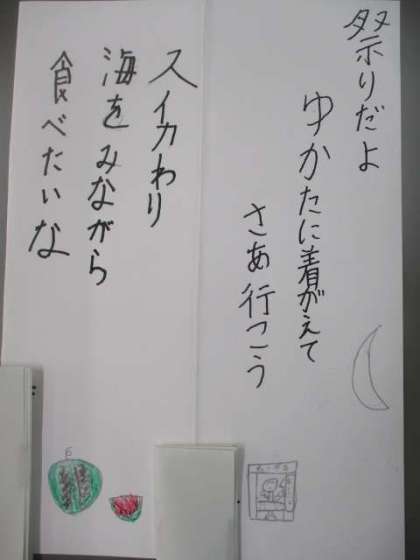 祭りだよ
ゆかたに着がえて
さあ行こう
スイカわり
海をみながら
食べたいな